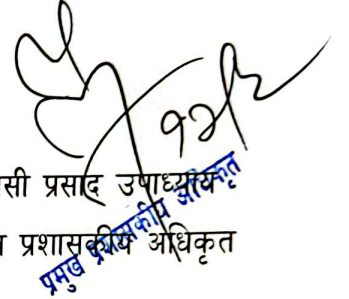 सी प्रसाद उपाध्याय
प्रशासकीय अधिकृत
प्रमुख प्रशासकीय अधिकृत